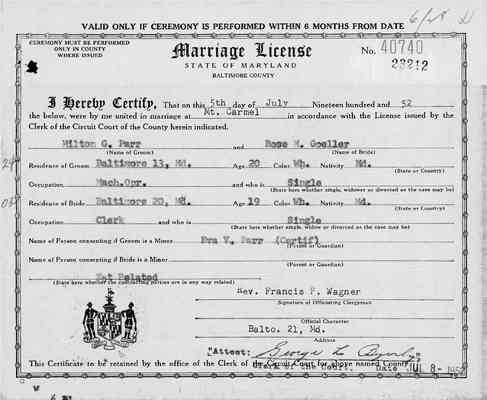 VALID ONLY IF CEREMONY IS PERFORMED WITHIN 6 MONTHS FROM DATE
CEREMONY MUST BE PERFORMED
ONLY IN COUNTY
WHERE ISSUED
Marriage License
No. 40740
23212
STATE OF MARYLAND
BALTIMORE COUNTY
I Hereby Certify, That on this 5th day of July Nineteen hundred and 52
the below, were by me united in marriage at Mt. Carmel in accordance with the License issued by the
Clerk of the Circuit Court of the County herein indicated.
Milton G. Parr and Rose M. Goeller
(Name of Groom) (Name of Bride)
Residence of Groom Baltimore 13, Md. Age 20 Color Wh. Nativity Md.
(State or Country)
Occupation Mach.Opr. and who is Single
(State here whether single, widower or divorced as the case may be)
Residence of Bride Baltimore 20, Md. Age 19 Color Wh. Nativity Md.
(State or Country)
Occupation Clerk and who is Single
(State here whether single, widow or divorced as the case may be)
Name of Person consenting if Groom is a Minor Eva V. Parr (Certif)
(Parent or Guardian)
Name of Person consenting if Bride is a Minor
(Parent or Guardian)
Not Related
(State here whether the contracting parties are in any way related)
Rev. Francis P. Wagner
Signature of Officiating Clergyman
Official Character
Balto. 21, Md.
Address
"Attest: George L.
Clerk of the Court. Date JUL 8- 195
This Certificate to be retained by the office of the Clerk of the Circuit Court for above named County